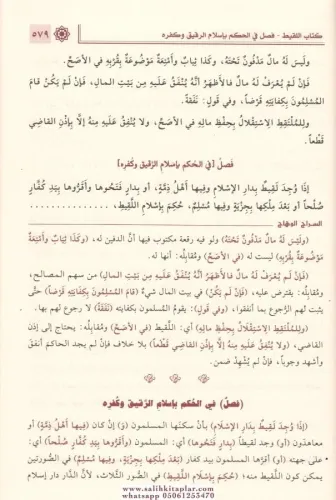 كتاب اللقيط - فصل في الحكم بإسلام الرقيق وكفره ٥٧٩
وَلَيْسَ لَهُ مَالٌ مَدْفُونٌ تَحْتَهُ، وَكَذَا ثِيَابٌ وَأَمْتِعَةٌ مَوْضُوعَةٌ بِقُرْبِهِ فِي الأَصَحِّ.
فَإِنْ لَمْ يُعْرَفْ لَهُ مَالٌ فَالأَظْهَرُ أَنَّهُ يُنْفَقُ عَلَيْهِ مِنْ بَيْتِ المَالِ، فَإِنْ لَمْ يَكُنْ قَامَ
المُسْلِمُونَ بِكِفَايَتِهِ قَرْضًا، وَفِي قَوْلٍ: نَفَقَةً.
وَلِلْمُلْتَقِطِ الِاسْتِقْلَالُ بِحِفْظِ مَالِهِ فِي الأَصَحِّ، وَلَا يُنْفِقُ عَلَيْهِ مِنْهُ إِلَّا بِإِذْنِ القَاضِي
قَطْعًا.
فصلٌ [في الحكم بإسلام الرقيق وكفره]
إِذَا وُجِدَ لَقِيطٌ بِدَارِ الإِسْلَامِ وَفِيهَا أَهْلُ ذِمَّةٍ، أَو بِدَارٍ فَتَحُوهَا وَأَقَرُّوهَا بِيَدِ كُفَّارٍ
صُلْحًا أَو بَعْدَ مِلْكِهَا بِجِزْيَةٍ وَفِيهَا مُسْلِمٌ، حُكِمَ بِإِسْلَامِ اللَّقِيطِ، ..............
السراج الوهاج
(وليس له مال مدفون تحته) ولو فيه رقعة مكتوب فيها أن الدفين له، (وكذا ثياب وأمتعة
موضوعة بقربه) ليست له (في الأصح).
(فإن لم يعرف له مال فالأظهر أنه ينفق عليه من بيت المال) من سهم المصالح،
ومقابله: يقترض عليه، (فإن لم يكن) في بيت المال شيء (قام المسلمون بكفايته قرضًا) حتى
يثبت لهم الرجوع بما أنفقوا، (وفي قول): يقوم المسلمون بكفايته (نفقة) لا رجوع لهم بها.
(وللملتقط الاستقلال بحفظ ماله) أي: اللقيط (في الأصح) ومقابله: يحتاج إلى إذن
القاضي، (ولا ينفق عليه منه إلا بإذن القاضي قطعًا) بلا خلاف فإن لم يجد الحاكم أنفق
وأشهد وجوبًا، فإن لم يشهد ضمن.
(فصل) في الحكم بإسلام الرقيق وكفره
(إذا وجد لقيط بدار الإسلام) بأن سكنها المسلمون (و) إن كان (فيها أهل ذمة) أو
معاهدون (أو) وجد لقيطًا (بدار فتحوها) أي: المسلمون (وأقروها بيد كفار صلحًا) أي:
على جهته (أو) أقرها المسلمون بيد كفار (بعد ملكها بجزية، وفيها مسلم) في الصورتين
يمكن كون اللقيط منه؛ (حكم بإسلام اللقيط) في الصور الثلاث، لأن الدار دار إسلام
www.salihkitaplar.com
whatsapp 05061253470